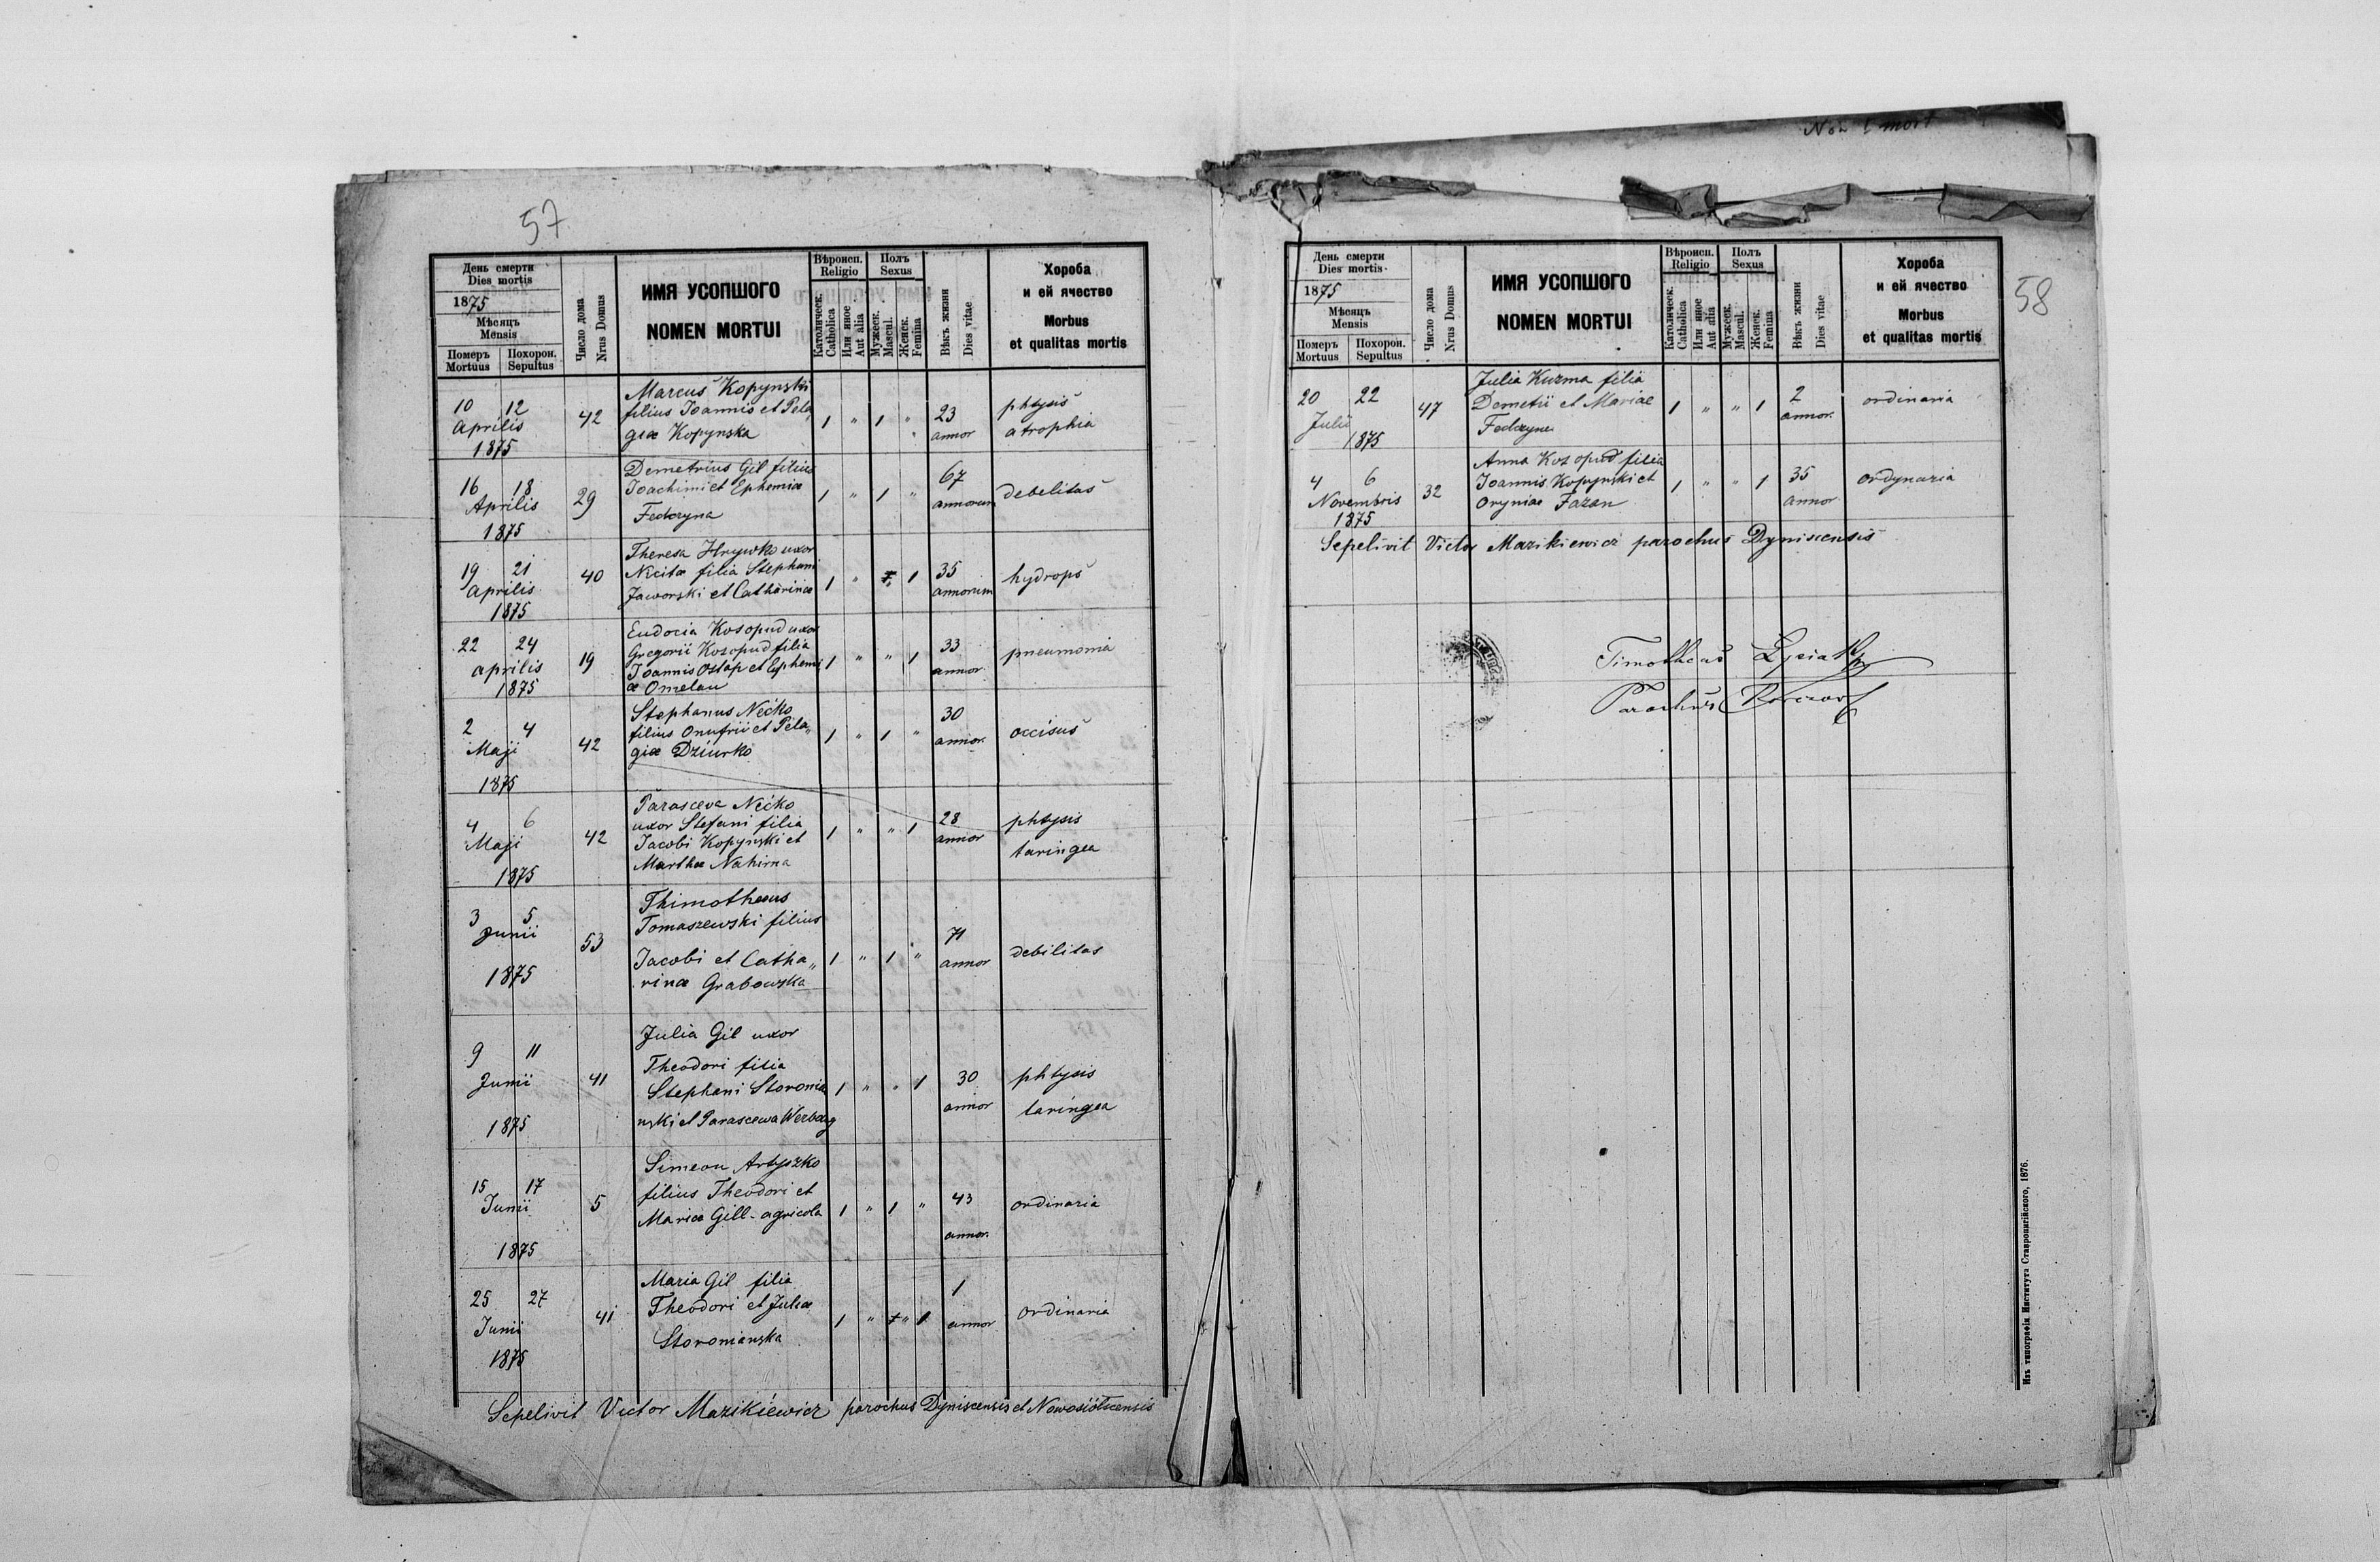 57
День смерти
Dies mortis
1875
Мѣсяцъ
Mensis
Померъ Похорон.
Mortuus Sepultus
Число дома
Nrus Domus
ИМЯ УСОПШОГО
NOMEN MORTUI
Вѣроисп.
Religio
Католическ.
Catholica
Или иное
Aut alia
Полъ
Sexus
Мужеск.
Mascul.
Женск.
Femina
Вѣкъ жизни
Dies vitae
Хороба
и ей ячество
Morbus
et qualitas mortis
10 12
Aprilis
1875
42
Marcus Kopynski
filius Joannis et Pela„
giæ Kopynska
1 " 1 "
23
annor
phtysis
atrophia
16 18
Aprilis
1875
29
Demetrius Gil filius
Joachimi et Ephemiæ
Fedczyna
1 " 1 "
67
annorum
debelitas
19 21
Aprilis
1875
40
Theresa Hrywko uxor
Nicitæ filia Stephani
Jaworski et Catharinæ
1 " 1
35
annorum
hydrops
22 24
aprilis
1875
19
Eudocia Kosopud uxor
Gregorii Kosopud filia
Joannis Ostap et Ephemi
æ Omelan
1 " " 1
33
annor
pneumonia
2 4
Maji
1875
42
Stephanus Nećko
filius Onufrii et Pela„
giæ Dziurko
1 " 1 "
30
annor.
occisus
4 6
Maji
1875
42
Parasceva Nećko
uxor Stefani filia
Jacobi Kopynski et
Marthæ Nahirna
1 " " 1
28
annor
phtysis
taringea
3 5
Junii
1875
53
Thimotheus
Tomaszewski filius
Jacobi et Catha„
rinæ Grabowska
1 " 1 "
71
annor
debilitas
9 11
Junii
1875
41
Julia Gil uxor
Theodori filia
Stephani Storonia
nski et Parascewa
1 " " 1
30
annor
phtysis
taringea
15 17
Junii
1875
5
Simeon Artyszko
filius Theodori et
Mariæ Gill - agricola
1 " 1 "
43
annor.
ordinaria
25 27
Junii
1875
41
Maria Gil filia
Theodori et Juliæ
Storonianska
1 " " 1
1
annor
ordinaria
Sepelivit Victor Mazikiewicz parochus Dyniscensis et Nowosiolscensis
mort
58
День смерти
Dies mortis
1875
Мѣсяцъ
Mensis
Померъ Похорон.
Mortuus Sepultus
Число дома
Nrus Domus
ИМЯ УСОПШОГО
NOMEN MORTUI
Вѣроисп.
Religio
Католическ.
Catholica
Или иное
Aut alia
Полъ
Sexus
Мужеск.
Mascul.
Женск.
Femina
Вѣкъ жизни
Dies vitae
Хороба
и ей ячество
Morbus
et qualitas mortis
20 22
Julii
1875
47
Julia Kuzma filia
Demetii et Mariæ
Fedczyna
1 " " 1
2
annor.
ordinaria
4 6
Novembris
1875
32
Anna Kosopud filia
Joannis Kopynski et
Oryniæ Fazan
1 " " 1
35
annor
ordynaria
Sepelivit Victor Mazikiewicz parochus Dyniscensis
Timotheus
Parochus
Изъ типографіи Института Ставропигійского, 1876.